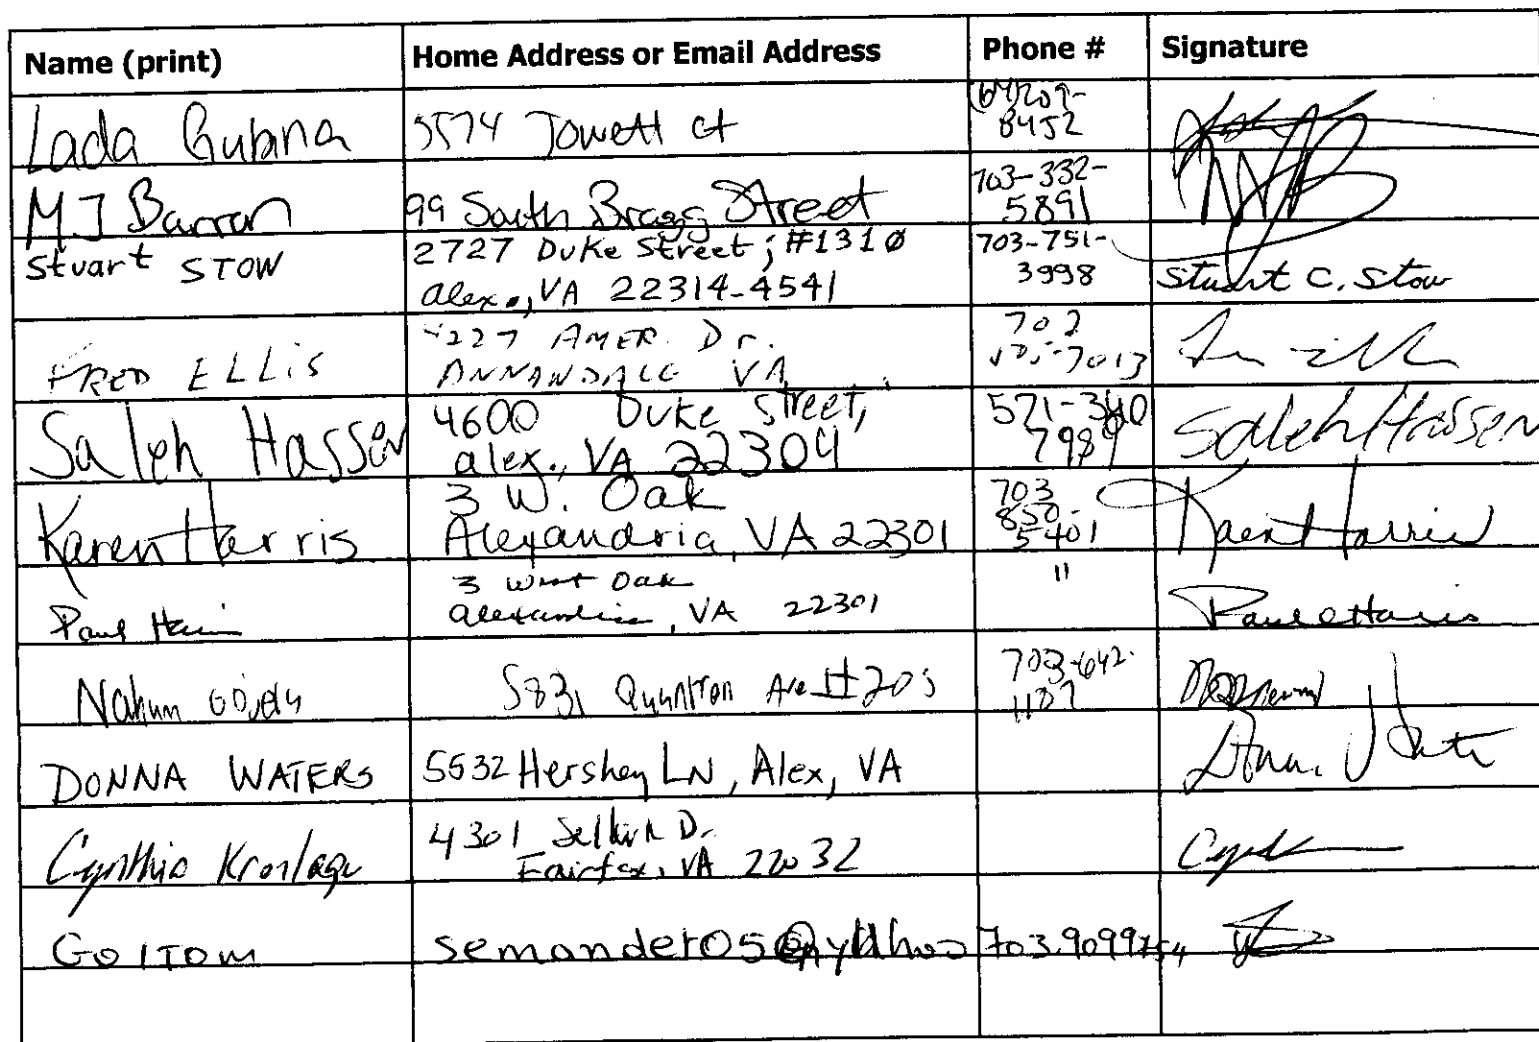 Name (print) Home Address or Email Address Phone # Signature
Lada Gubana 5574 Jowett ct 209-
8452
MJ Barron 99 South Bragg Street 703-332-
5891
Stuart STOW 2727 Duke Street; #1310 703-751-
Alex., VA 22314-4541 3998 Stuart C. Stow
FRED ELLIS AMER. Dr. 703
ANNANDALE VA 7013
Saleh Hassen 4600 Duke street, 571-340 Saleh Hassen
alex., VA 22304 7989
Karen Harris 3 W. Oak 703
Alexandria, VA 22301 850-
5401 Karen Harris
Paul Harris 3 West Oak "
Alexandria, VA 22301 Paul Harris
Nahum 5831 Ave #203 703-642-
1107
DONNA WATERS 5532 Hershey LN, Alex, VA
Cynthia Kronlage 4301 Selkirk Dr.
Fairfax, VA 22032
GOITOM 703.909